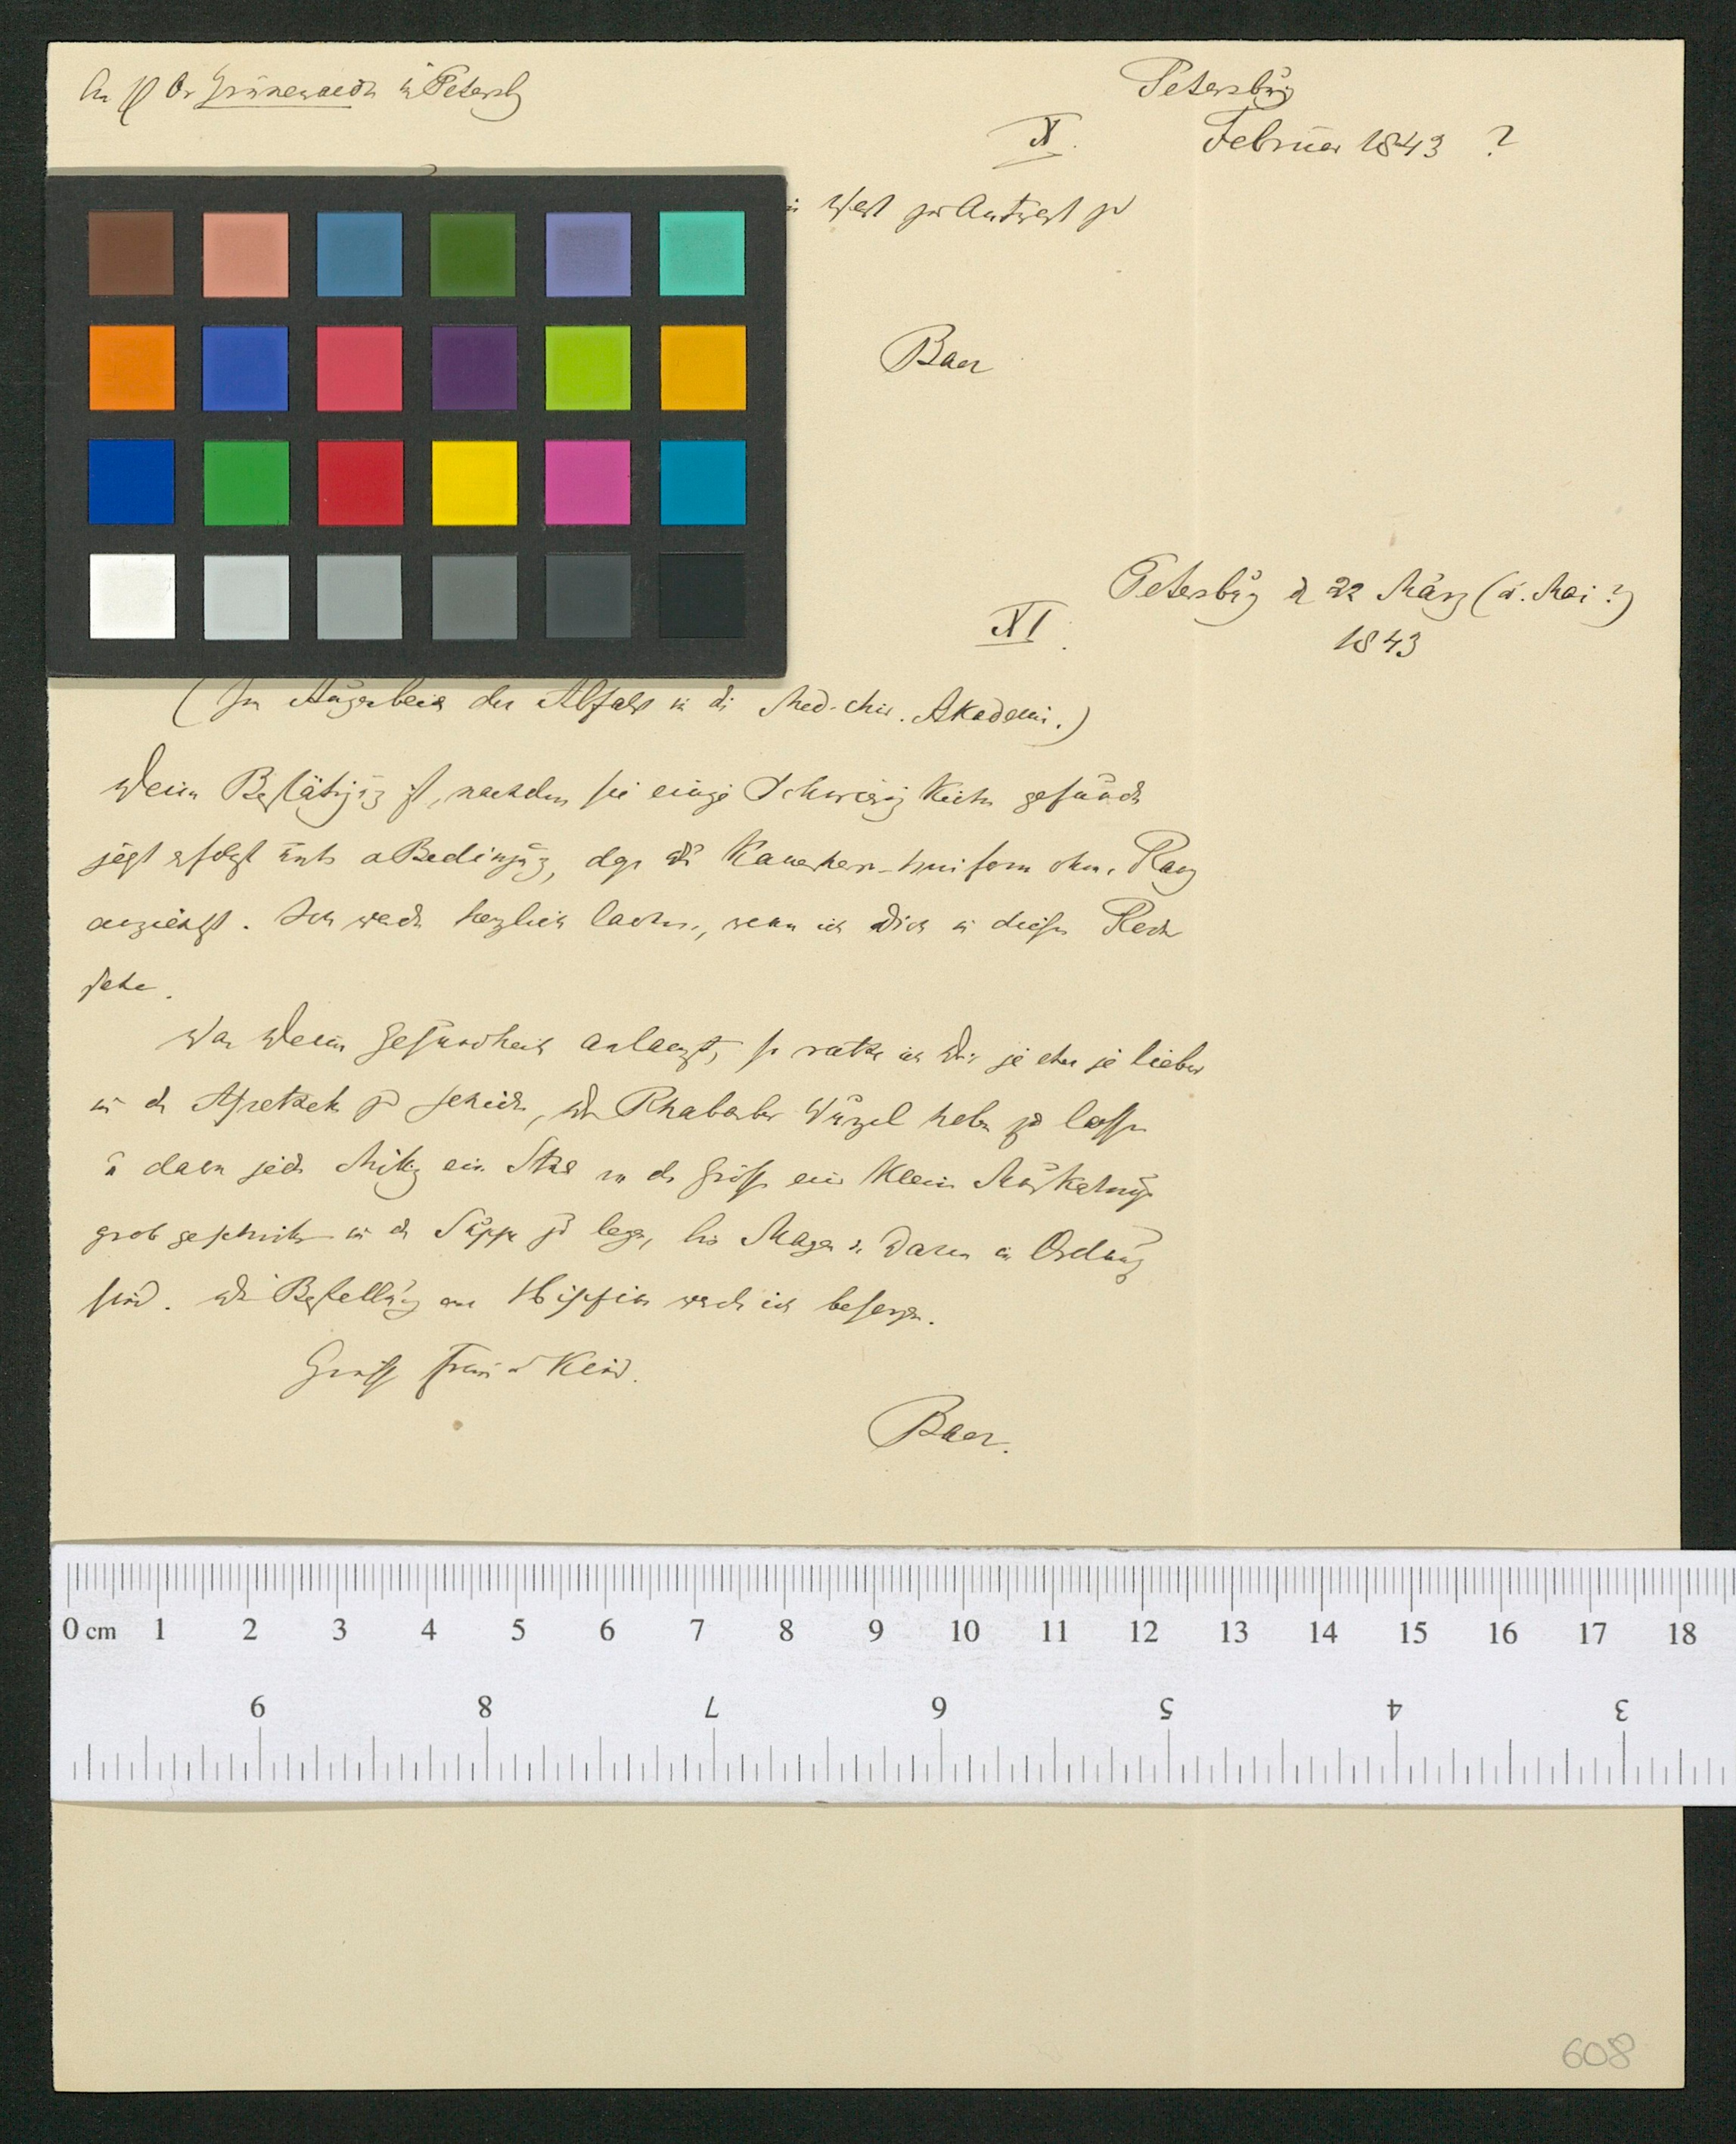 An H Dr Grünewaldt in Petersb
Petersburg
X.
Februar 1843 ?
Wort zur Antwort zu
Baer
Petersburg d 22 März (o. Mai ?)
1843
XI.
(Im Augenblick der Abfahrt in die Med. chir. Akademie.)
Deine Bestätigung ist, nachdem sie einige Schwierigkeiten gefunden
jetzt erfolgt unter d Bedingung, dass du Kammerherrn-Uniform ohne Rang
anziehst. Ich werde herzlich lachen, wenn ich Dich in diesem Rock
sehe.
Was Deine Gesundheit anlangt, so rathe ich Dir je eher je lieber
in die Apotheke zu schicken, Rhabarber Wurzel holen zu lassen
u dann jeden Mittag ein Stück von der Grösse einer kleinen Muskatnuss
grob geschnitten in die Suppe zu legen, bis Magen u Darm in Ordnung
sind. Die Bestellung an Hippius werde ich besorgen.
Grüsse Frau u Kind.
Baer.
0 cm 1 2 3 4 5 6 7 8 9 10 11 12 13 14 15 16 17 18
9 8 7 6 5 4 3
608